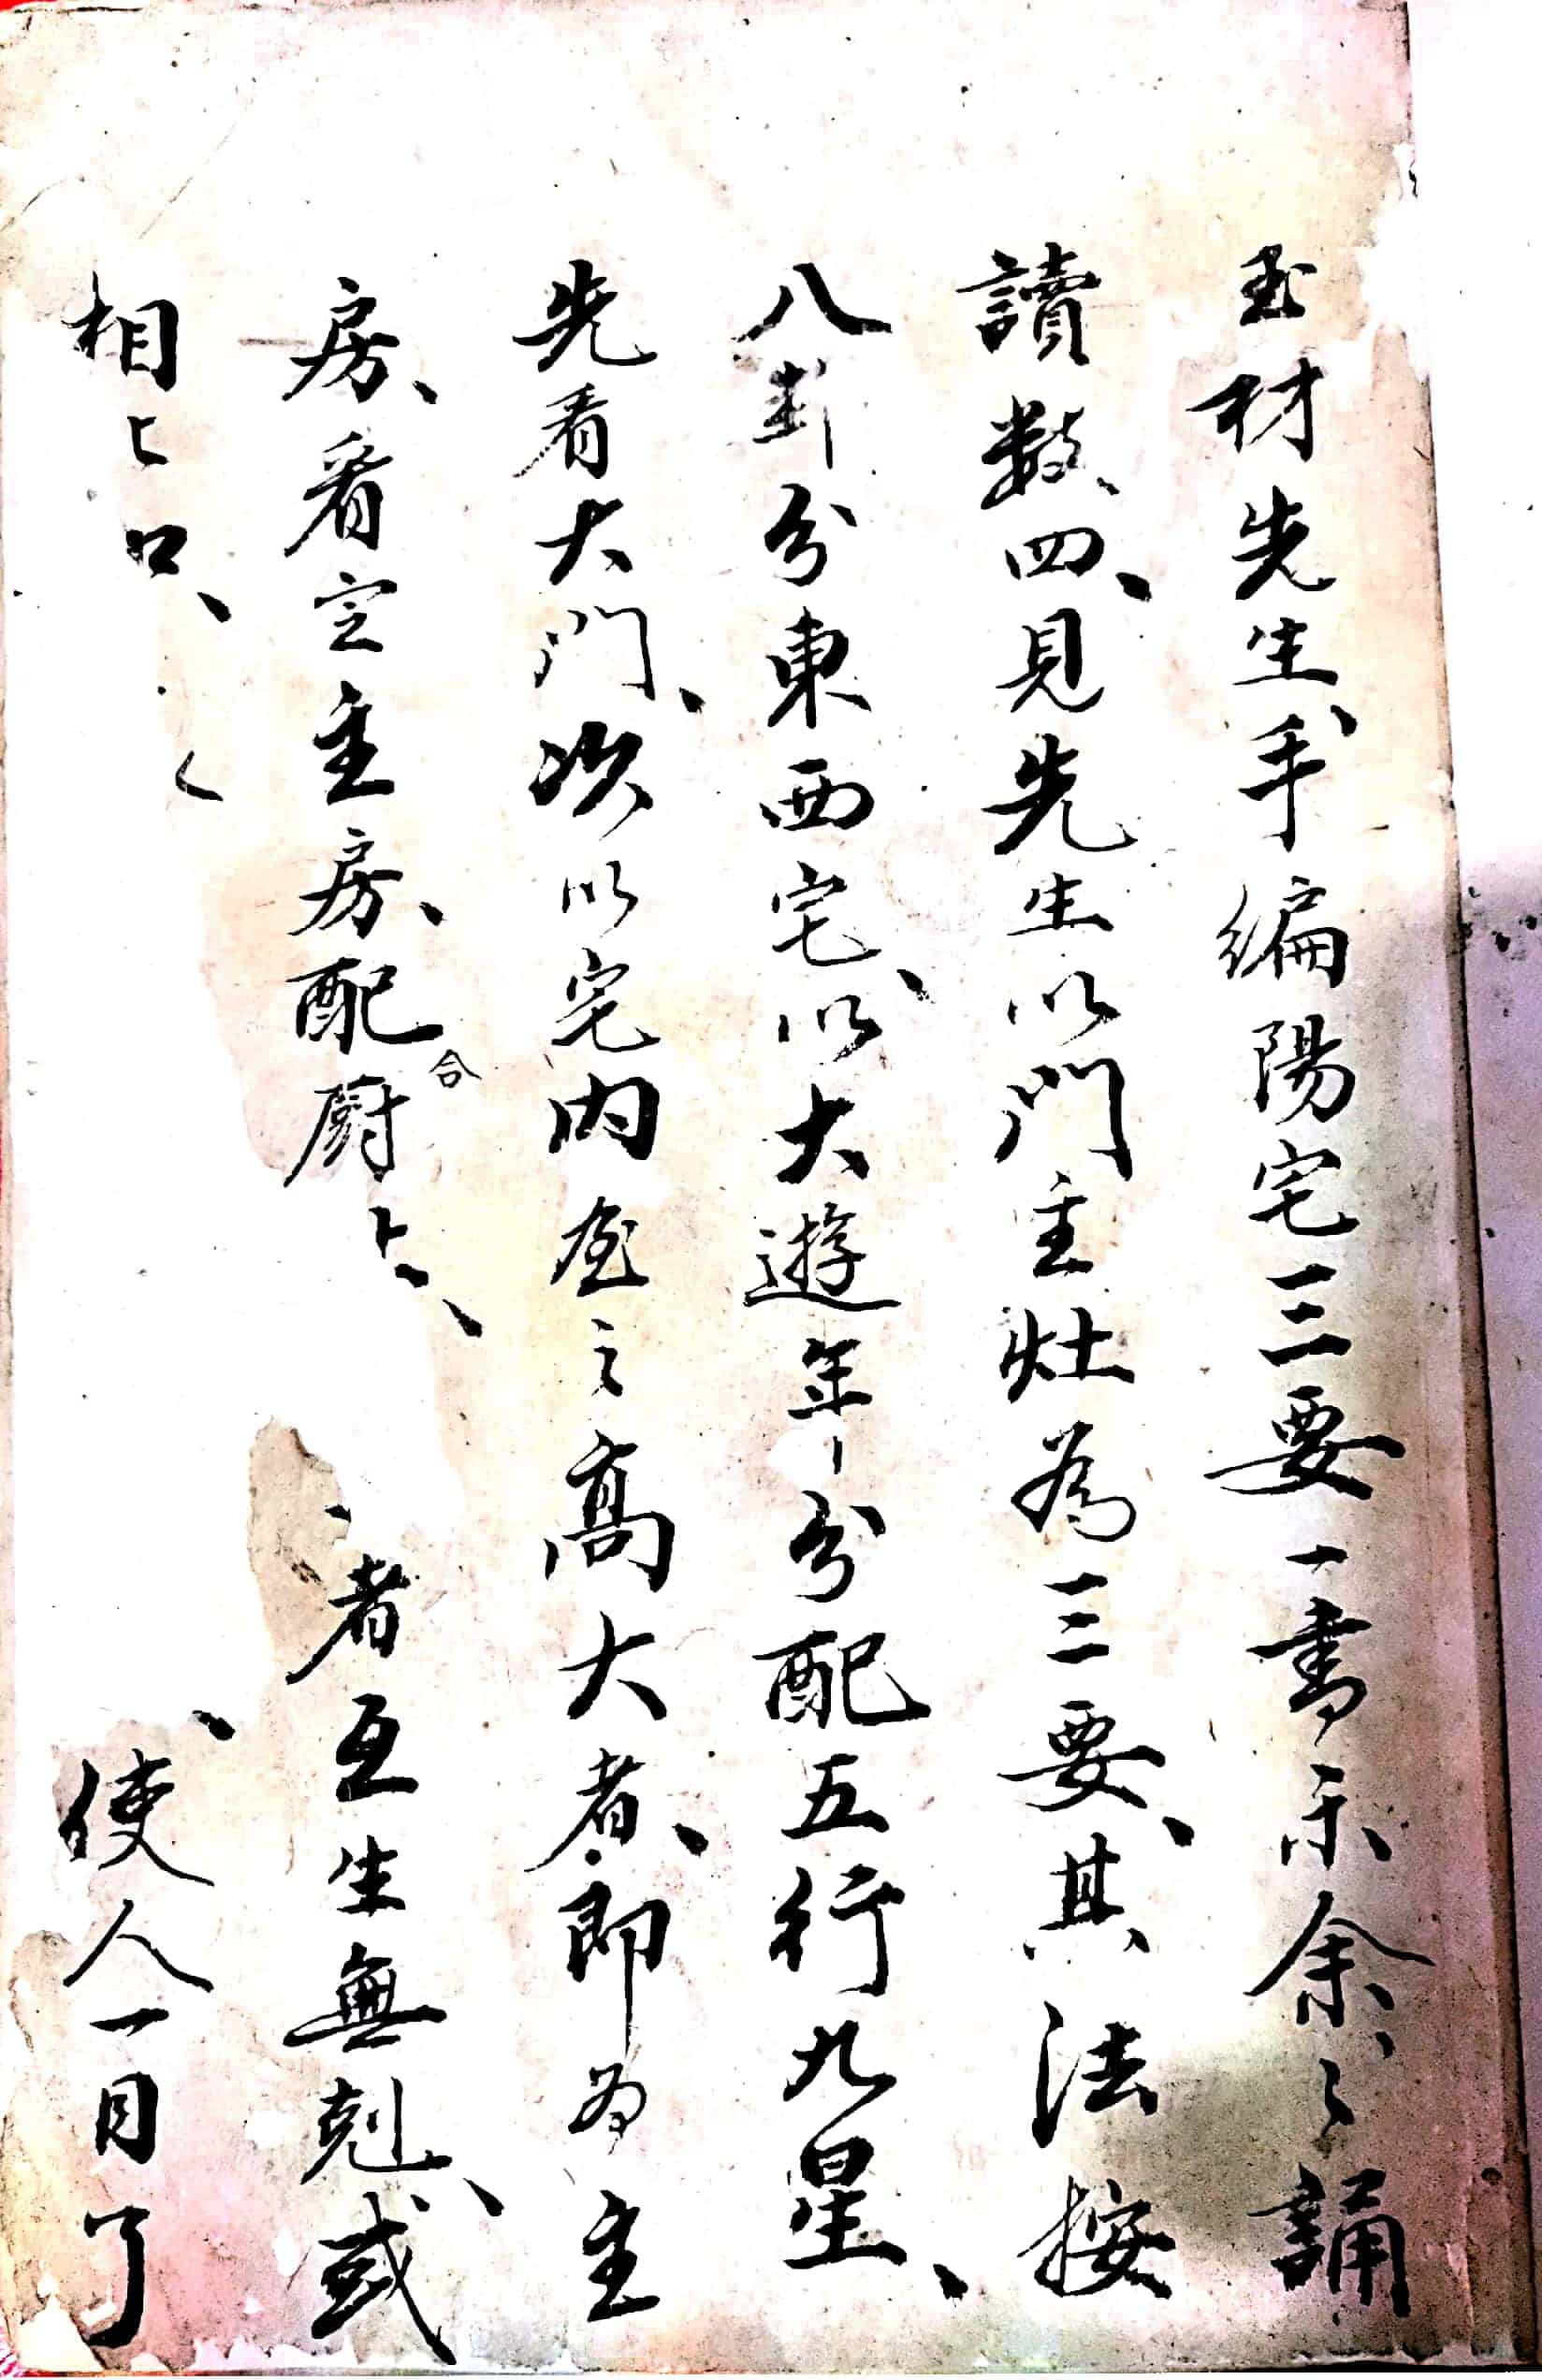 玉材先生、手編陽宅三要一書示余、々誦
讀数四、見先生以門主灶為三要、其法按
八卦分東西宅、以大遊年分配五行九星、
先看大門、次以宅内屋之高大者、即为主
房、看定主房、配合厨
者互生無剋、或
相
使人一目了